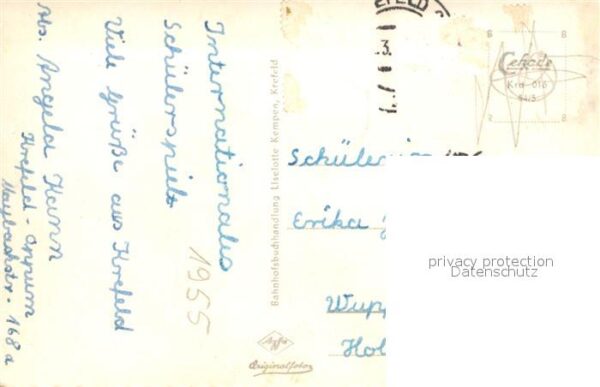 Internationales
Schülerspiel
Viele Grüße aus Krefeld
Abs. Angela Kann
Krefeld - Oppum
Maybachstr. 168a
1955
Bahnhofsbuchhandlung Liselotte Kempen, Krefeld
Agfa
Originalfoto
EFELD
3.
Cekade
Kre 016
Schülerin
Erika
Wupp
Hol
privacy protection
Datenschutz